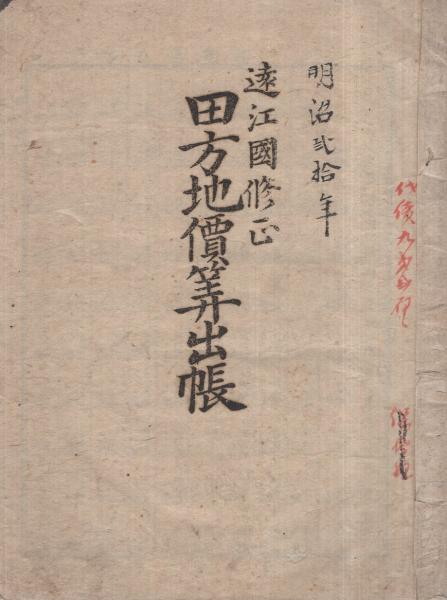 明治弐拾年
遠江國修正
田方地價筭出帳